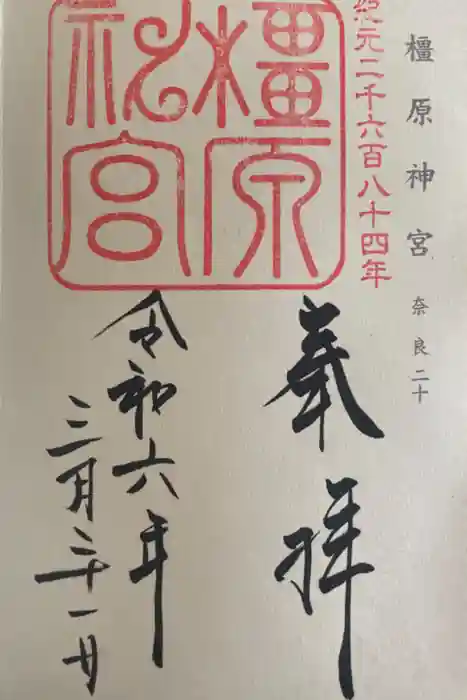 橿原神宮 奈良二十
紀元二千六百八十四年
橿原
神宮
奉拝
令和六年
三月二十一日